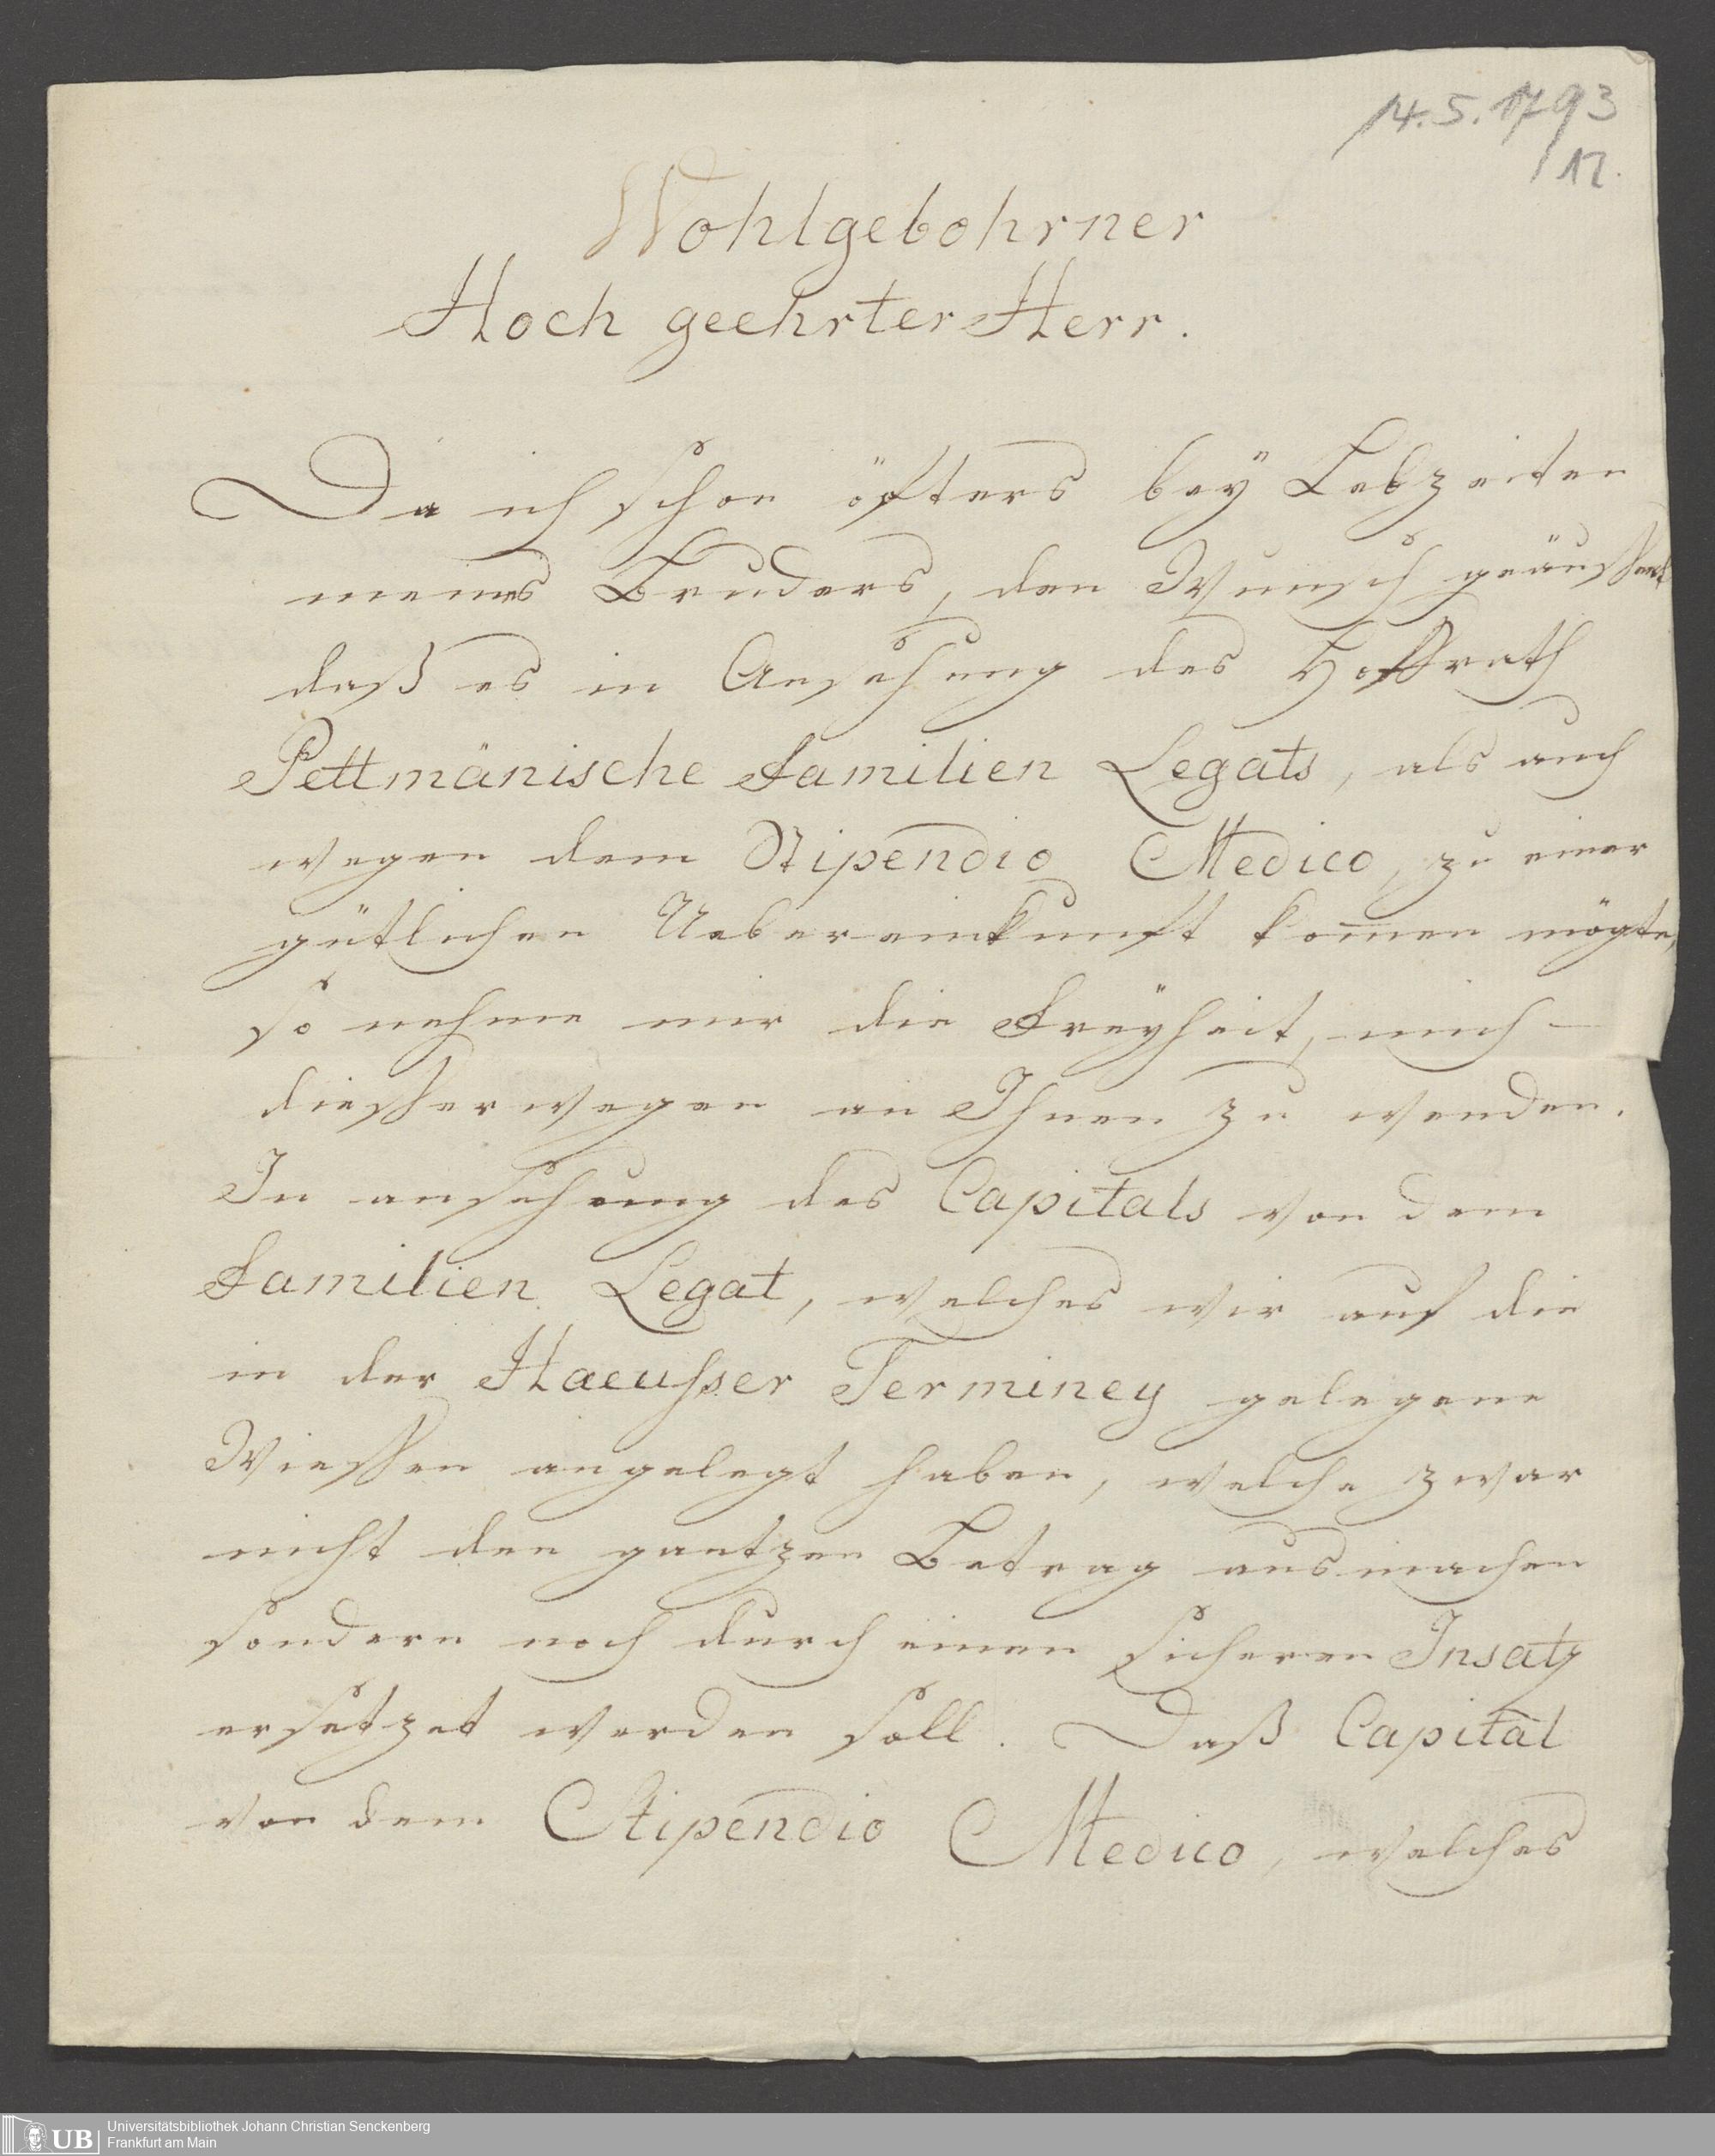 14.5.1793
12.
Wohlgebohrner
Hoch geehrter Herr.
Da ich schon öfters beÿ Lebzeiten
meines Bruders, den Wunsch geäussert
daß es in Ansehung des Hoffrath
Pettmänische Familien Legats, als auch
wegen dem Stipendio Medico, zu einer
gütlichen Uebereinkunft kom̄en mögte,
so nehme mir die Freÿheit, mich
diesserwegen an Ihnen zu wenden.
In ansehung des Capitals von dem
Familien Legat, welches wir auf die
in der Haeusser Terminey gelegene
Wiessen angelegt haben, welche zwar
nicht den gantzen Betrag ausmachen
sondern noch durch einen sicheren Insatz
ersetzet werden soll. Daß Capital
von dem Stipendio Medico, welches
UB
Universitätsbibliothek Johann Christian Senckenberg
Frankfurt am Main